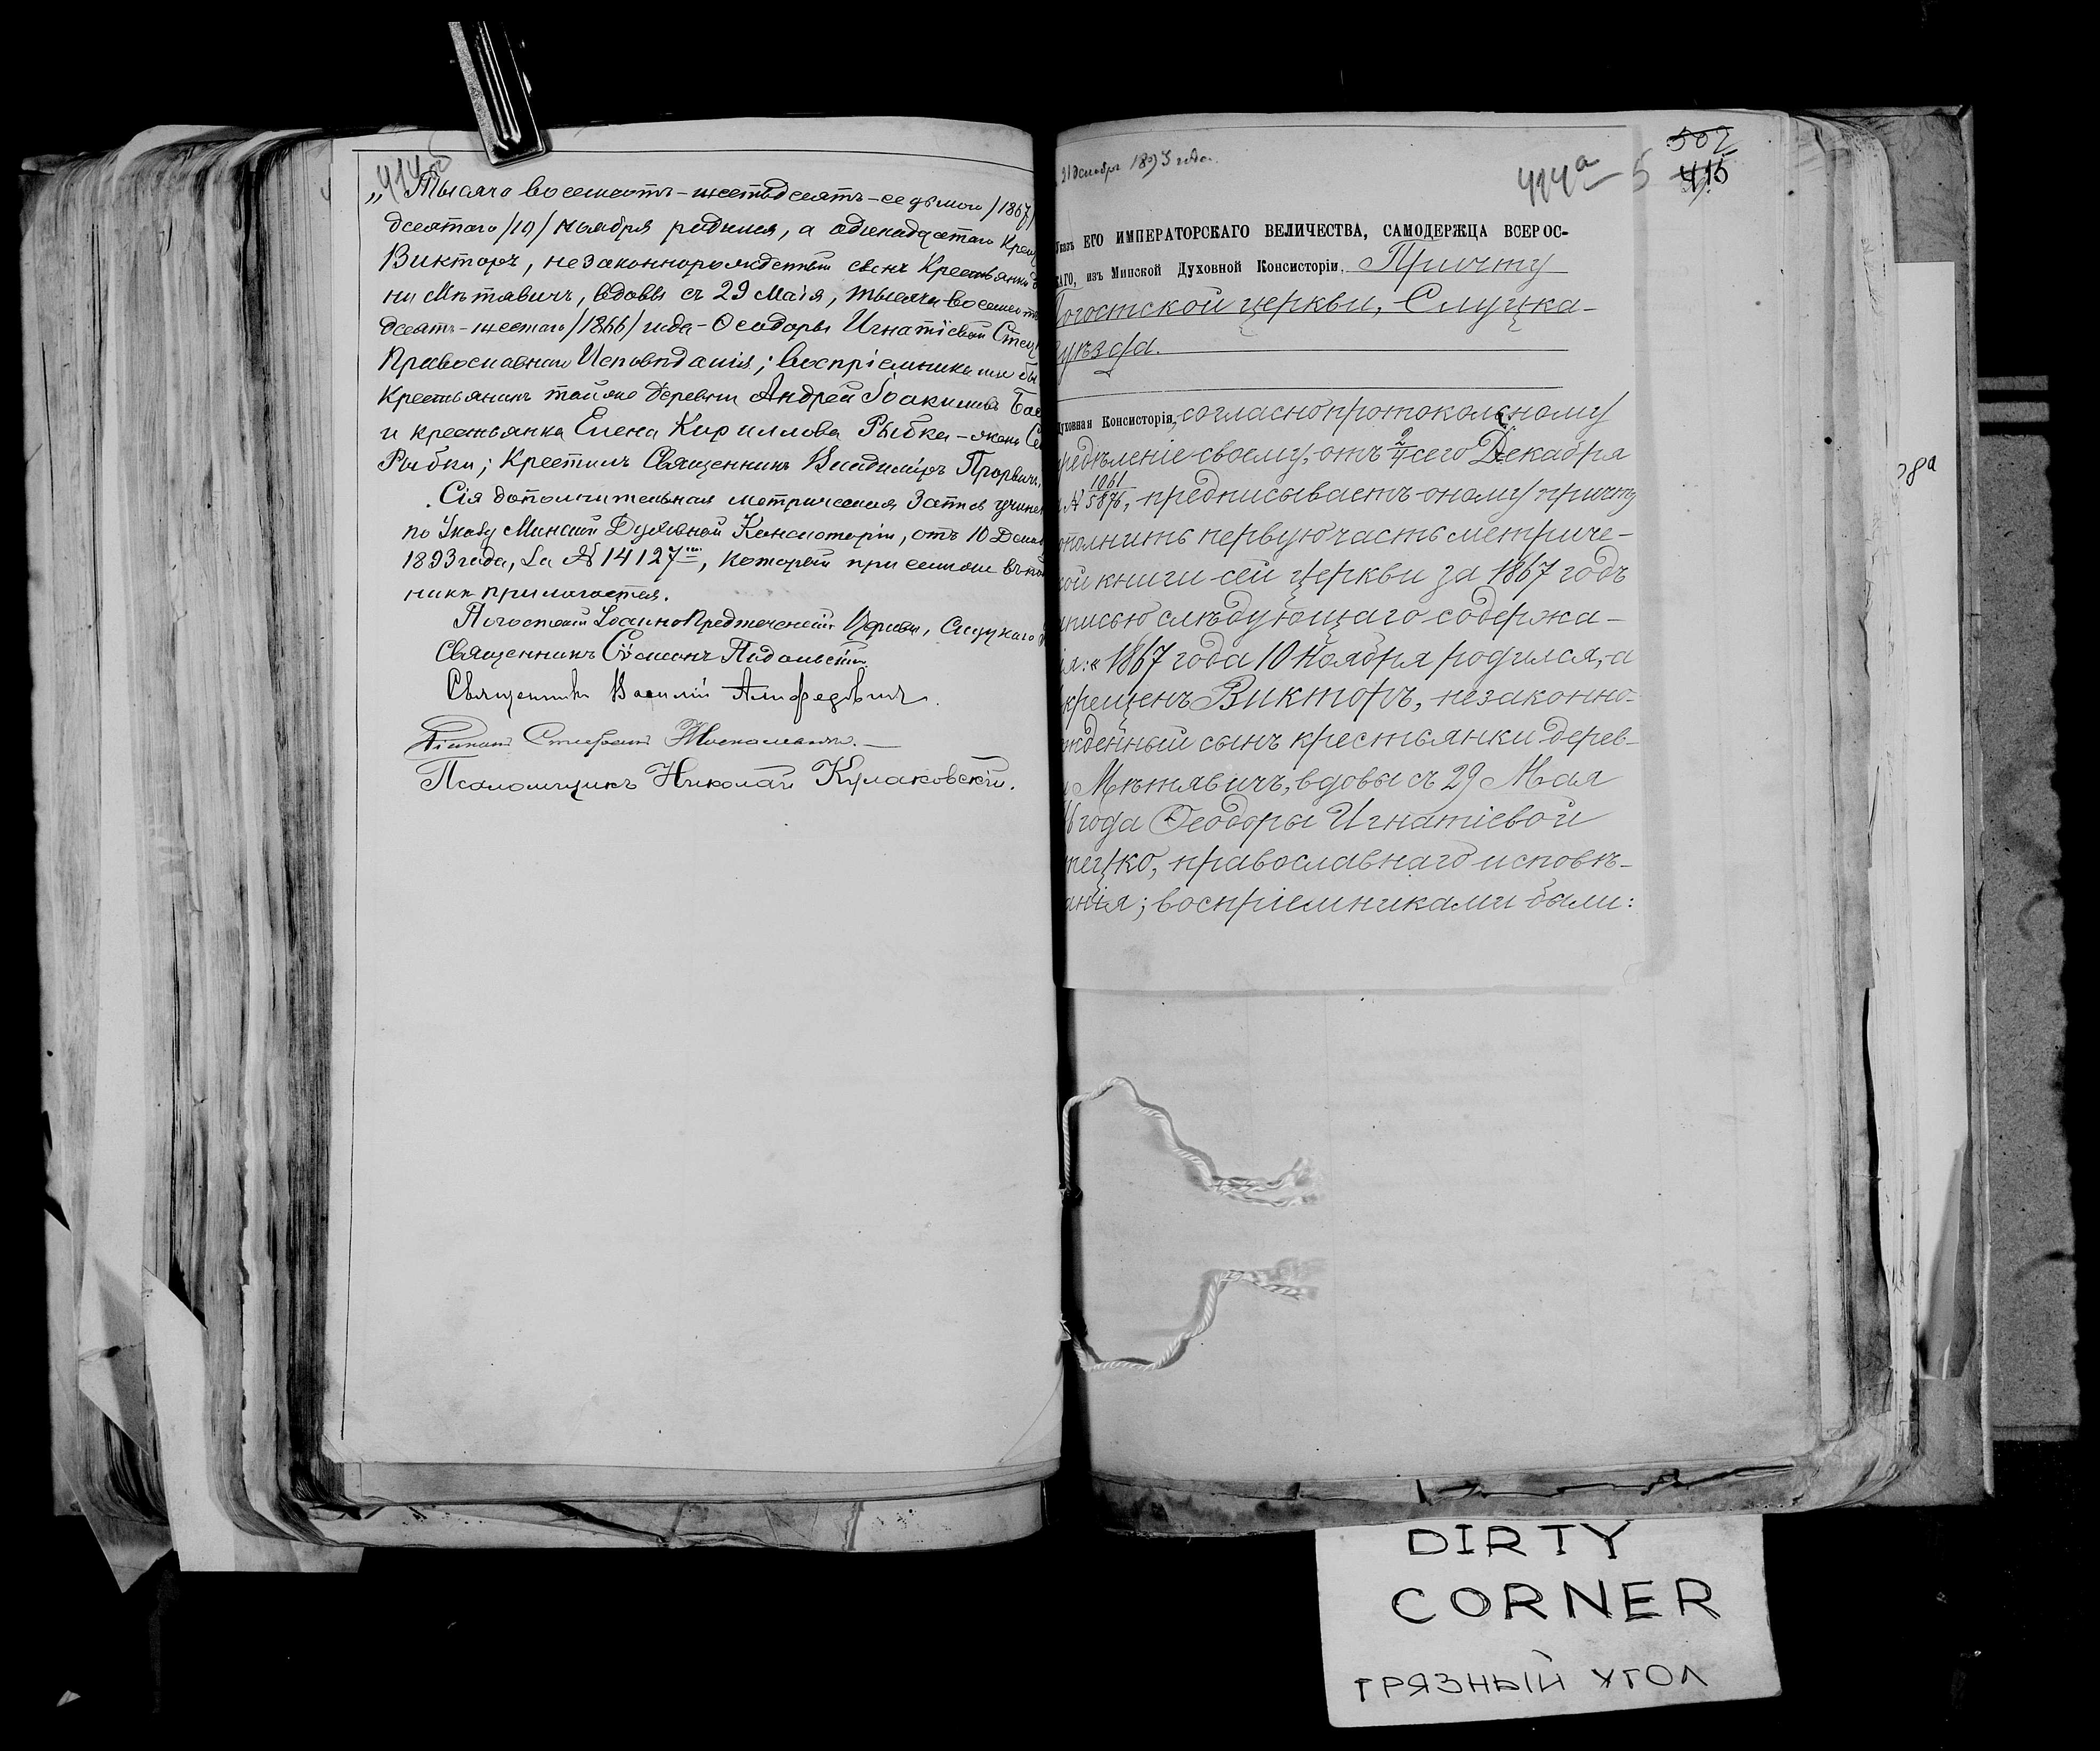 414б
„Тысяча восемьсотъ-шестьдесятъ-седьмого /1867/
десятаго /10/ ноября родился, а одинадцатаго Крещ
Викторъ, незаконнорожденный сынъ Крестьянки д
ни Мѣтявичъ, вдовы съ 29 Маія, тысяча восемьсот
десятъ-шестаго /1866/ года-Ѳеодоры Игнатіевой Стец
Православнаго Исповѣданія; воспріемниками бы
Крестьянинъ той же деревни Андрей Іоакимовъ
и крестьянка Елена Кириллова Рыбка-жена
Рыбки; Крестилъ Священникъ Владиміръ Прорвичъ.
Сія дополнительная метрическая запись учинен
по Указу Минской Духовной Консисторіи, отъ 10 Декаб
1893 года, за № 14127, который при семъ же въ
никѣ прилагается.
Погостской Іоанно Предтеченской Церкви, Слуцкаго
Священникъ Сѵмеонъ Подольскій.
Священникъ Василій
Діаконъ Стефанъ
Псаломщикъ Николай Кулаковскій.
21 декабря 1893 года.
414а
5
507
415
Указъ ЕГО ИМПЕРАТОРСКАГО ВЕЛИЧЕСТВА, САМОДЕРЖЦА ВСЕРОС-
КАГО, изъ Минской Духовной Консисторіи, Причту
Погостской церкви, Слуцка-
уѣзда.
Духовная Консисторія, согласно протокольному
редѣленіе своему, отъ 2/4 сего Декабря
№ 1061/5876, предписываетъ оному причту
ополнить первую часть метриче-
кой книги сей церкви за 1867 годъ
писью слѣдующаго содержа-
ія: „1867 года 10 Ноября родился, а
крещенъ Викторъ, незаконно-
жденный сынъ крестьянки дерев-
Мѣтявичъ, вдовы съ 29 Мая
6 года Ѳеодоры Игнатіевой
тецко, православнаго исповѣ-
анія; воспріемниками были:
DIRTY
CORNER
ГРЯЗНЫЙ УГОЛ